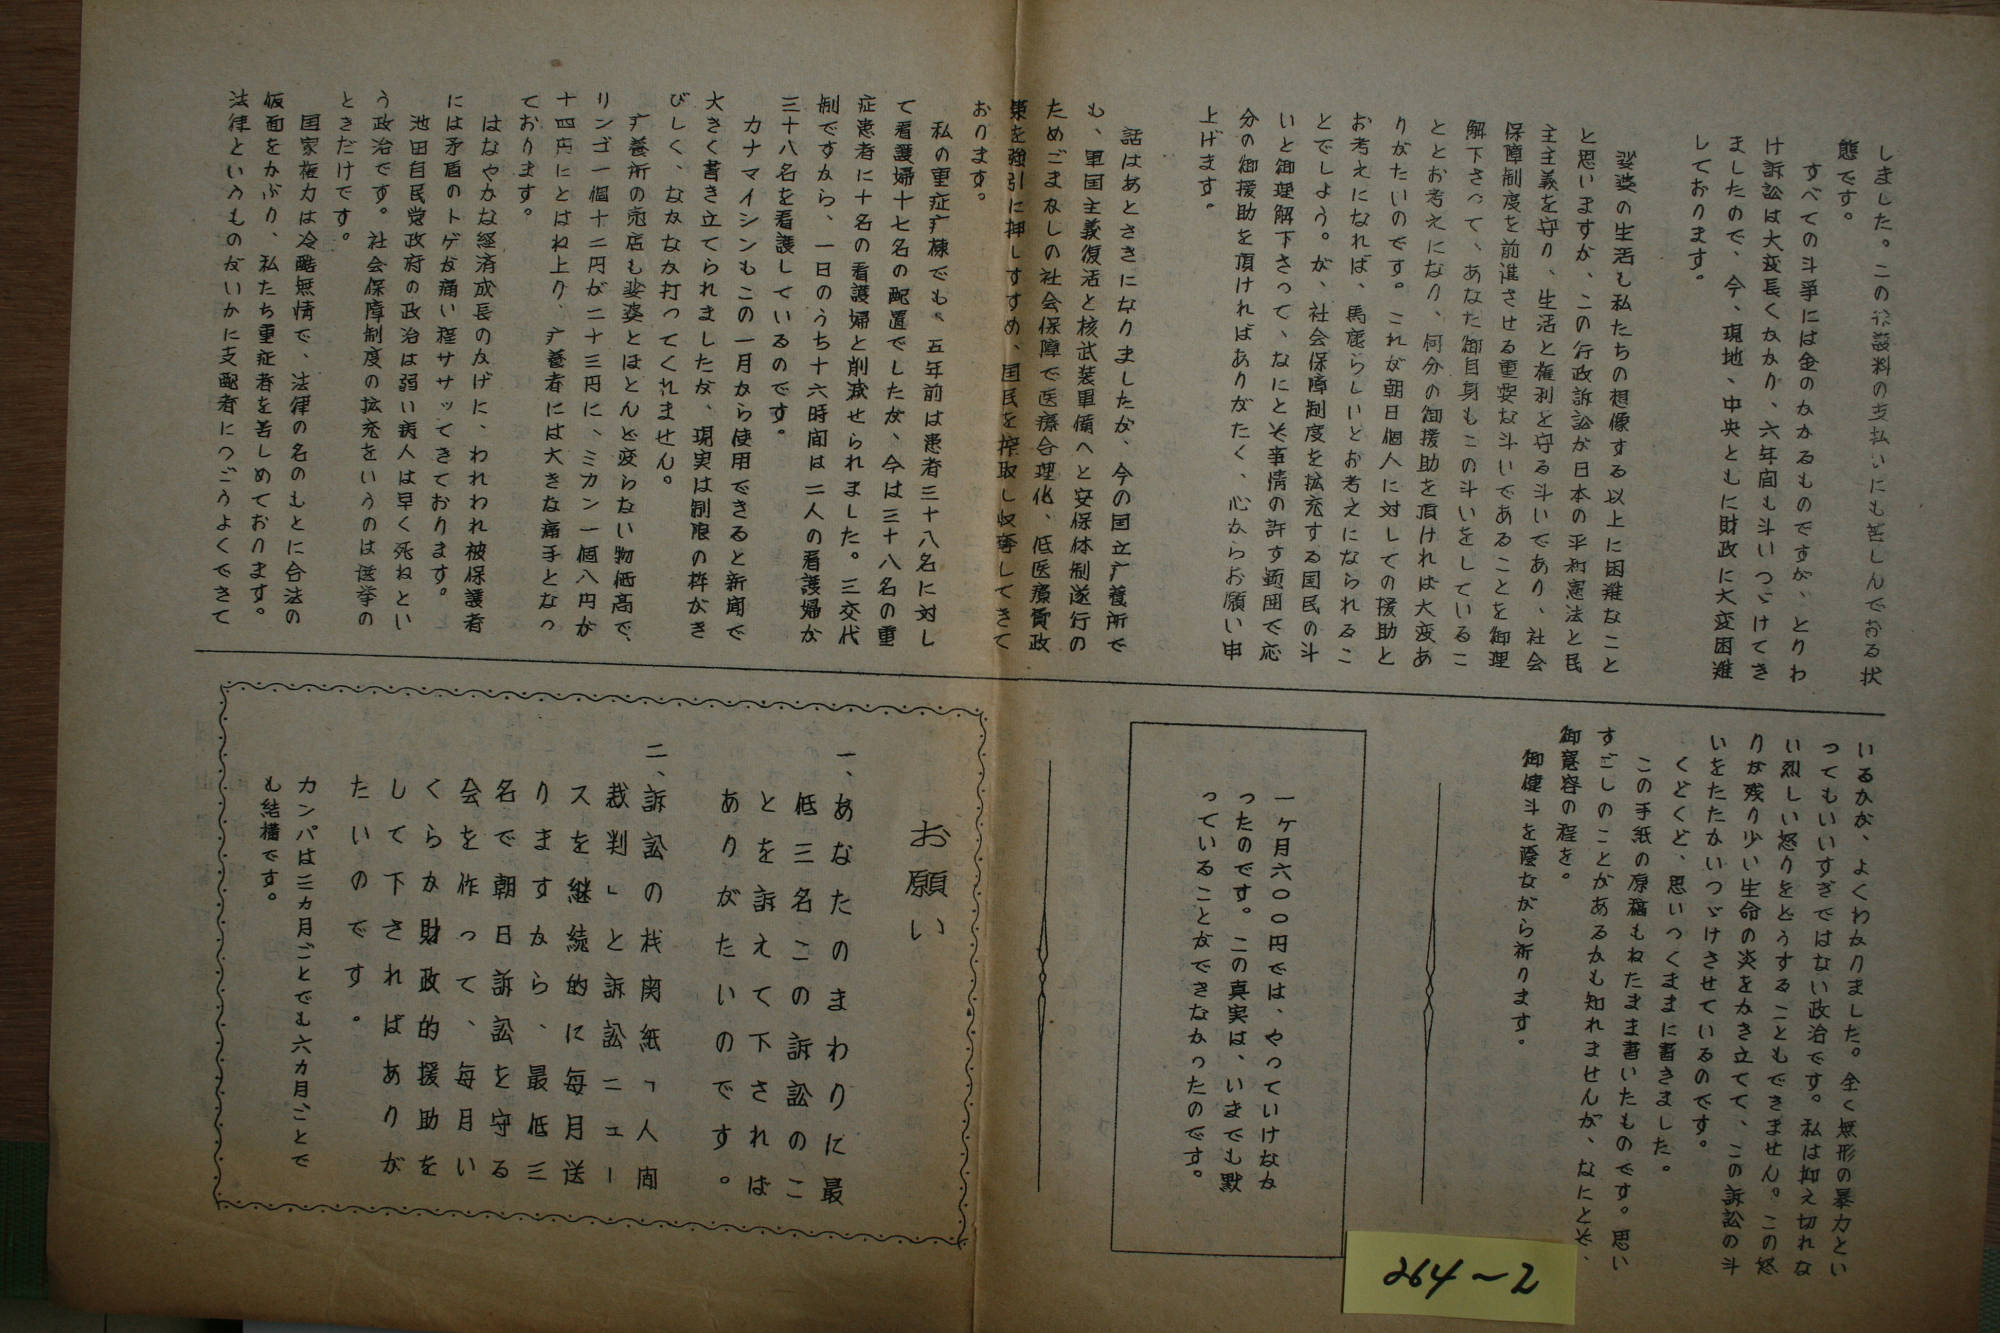 しました。この弁護料の支払いにも苦しんでおる状
態です。
すべての斗争には金のかかるものですが、とりわ
け訴訟は大変長くかかり、六年間も斗いつゞけてき
ましたので、今、現地、中央ともに財政に大変困難
しております。
娑婆の生活も私たちの想像する以上に困難なこと
と思いますが、この行政訴訟が日本の平和憲法と民
主主義を守り、生活と権利を守る斗いであり、社会
保障制度を前進させる重要な斗いであることを御理
解下さって、あなた御自身もこの斗いをしているこ
ととお考えになり、何分の御援助を頂ければ大変あ
りがたいのです。これが朝日個人に対しての援助と
お考えになれば、馬鹿らしいとお考えになられるこ
とでしよう。が、社会保障制度を拡充する国民の斗
いと御理解下さって、なにとぞ事情の許す範囲で応
分の御援助を頂ければありがたく、心からお願い申
上げます。
話はあとさきになりましたが、今の国立疒養所で
も、軍国主義復活と核武装軍備へと安保体制遂行の
ためごまかしの社会保障で医療合理化、低医療費政
策を強引に押しすすめ、国民を搾取し収奪してきて
おります。
私の重症疒棟でも、五年前は患者三十八名に対し
て看護婦十七名の配置でしたが、今は三十八名の重
症患者に十名の看護婦と削減せられました。三交代
制ですから、一日のうち十六時間は二人の看護婦が
三十八名を看護しているのです。
カナマイシンもこの一月から使用できると新聞で
大きく書き立てられましたが、現実は制限の枠がき
びしく、なかなか打ってくれません。
疒養所の売店も娑婆とほとんど変らない物価高で、
リンゴ一個十二円が二十三円に、ミカン一個八円が
十四円にとはね上り、疒養者には大きな痛手となっ
ております。
はなやかな経済成長のかげに、われわれ被保護者
には矛盾のトゲが痛い程ササッてきております。
池田自民党政府の政治は弱い病人は早く死ねとい
う政治です。社会保障制度の拡充をいうのは選挙の
ときだけです。
国家権力は冷酷無情で、法律の名のもとに合法の
仮面をかぶり、私たち重症者を苦しめております。
法律というものがいかに支配者につごうよくできて
いるかが、よくわかりました。全く無形の暴力とい
つてもいいすぎではない政治です。私は抑え切れな
い烈しい怒りをどうすることもできません。この怒
りが残り少い生命の炎をかき立てて、この訴訟の斗
いをたたかいつゞけさせているのです。
くどくど、思いつくままに書きました。
この手紙の原稿もねたまま書いたものです。思い
すごしのことがあるかも知れませんが、なにとぞ、
御寛容の程を。
御健斗を蔭ながら祈ります。
一ケ月六〇〇円では、やっていけなか
ったのです。この真実は、いまでも黙
っていることができなかったのです。
お願い
一、あなたのまわりに最
低三名この訴訟のこ
とを訴えて下されば
ありがたいのです。
二、訴訟の栈関紙「人間
裁判」と訴訟ニュー
スを継続的に毎月送
りますから、最低三
名で朝日訴訟を守る
会を作って、毎月い
くらか財政的援助を
して下さればありが
たいのです。
カンパは三ヵ月ごとでも六カ月ごとで
も結構です。
264~2